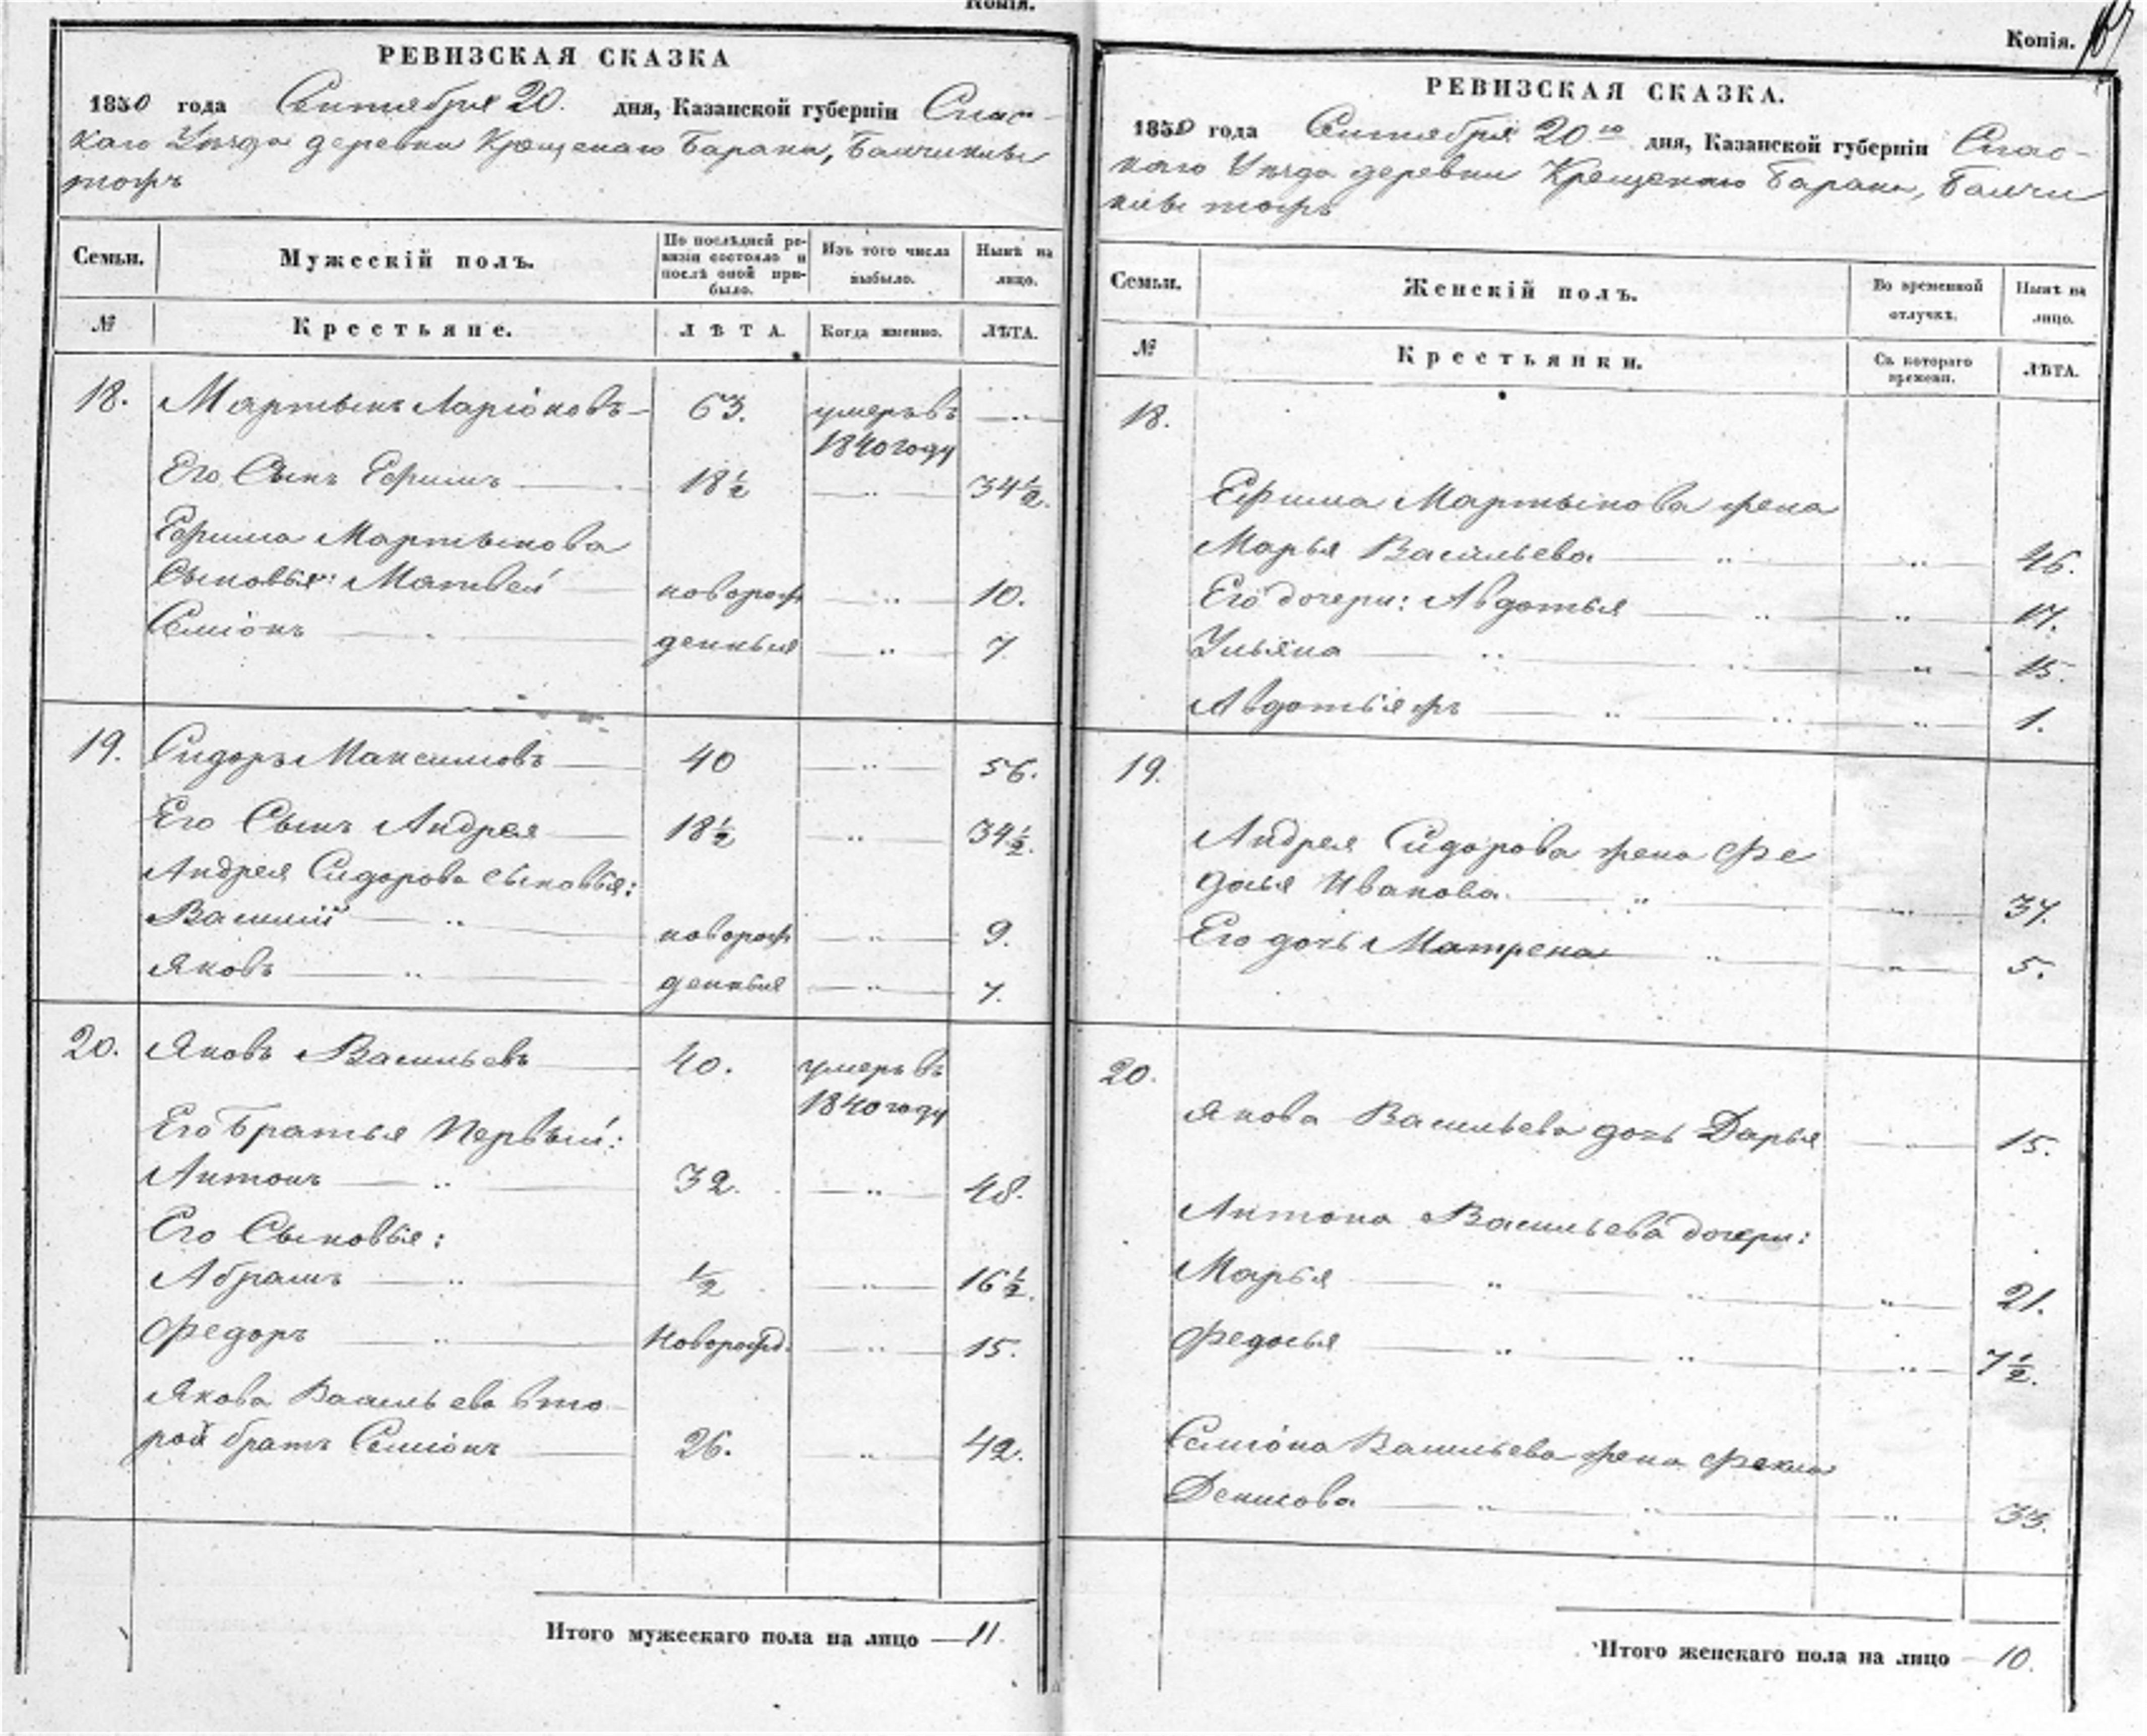 Копія.
РЕВИЗСКАЯ СКАЗКА
1850 года Сентября 20. дня, Казанской губерніи Спас-
каго Уѣзда деревни Крещенаго Барана, Балчиклы
тожъ
Семьи. Мужескій полъ. По послѣдней ре-визіи состояло и послѣ оной при-было. Изъ того числа выбыло. Нынѣ на лицо.
№ Крестьяне. ЛѢТА. Когда именно. ЛѢТА.
18. Мартынъ Ларіоновъ 63. умеръ въ
1840 году
Его Сынъ Ефимъ 18½ 34½.
Ефима Мартынова
Сыновья: Матвей новорож 10.
Семіонъ денныя 7
19. Сидоръ Максимовъ 40 56.
Его Сынъ Андрей 18½ 34½.
Андрея Сидорова сыновья:
Василій новорож 9.
Яковъ денныя 7.
20. Яковъ Васильевъ 40. умеръ въ
1840 году
Его Братья Первый:
Антонъ 32. 48.
Его Сыновья:
Абрамъ ½ 16½.
Федоръ Новорожд. 15.
Якова Васильева вто
рой братъ Семіонъ 26. 42.
Итого мужескаго пола на лицо — 11.
Копія.
РЕВИЗСКАЯ СКАЗКА.
1850 года Сентября 20го дня, Казанской губерніи Спас-
каго Уѣзда деревни Крещенаго Барана, Балчи
клы тожъ
Семьи. Женскій полъ. Во временной отлучкѣ. Нынѣ на лицо.
№ Крестьянки. Съ котораго времени. ЛѢТА.
18.
Ефима Мартынова жена
Марья Васильева 46.
Его дочери: Авдотья 17.
Ульяна 15.
Авдотья жъ 1.
19.
Андрея Сидорова жена Фе
досья Иванова 37.
Его дочь Матрена 5.
20.
Якова Васильева дочь Дарья 15.
Антона Васильева дочери:
Марья 21.
Федосья 7½.
Семіона Васильева жена Фекла
Денисова 33.
Итого женскаго пола на лицо 10.